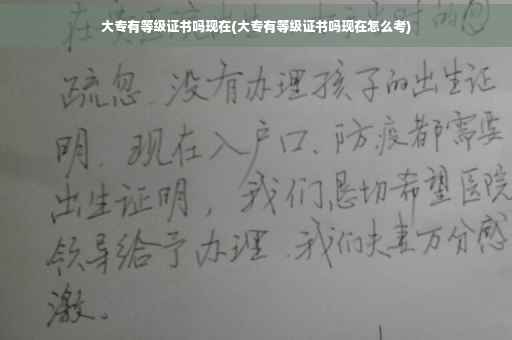 大专有等级证书吗现在(大专有等级证书吗现在怎么考)
疏忽、没有办理孩子的出生证
明、现在入户口、防疫都需要
出生证明，我们恳切希望医院
领导给予办理、我们夫妻万分感
激。